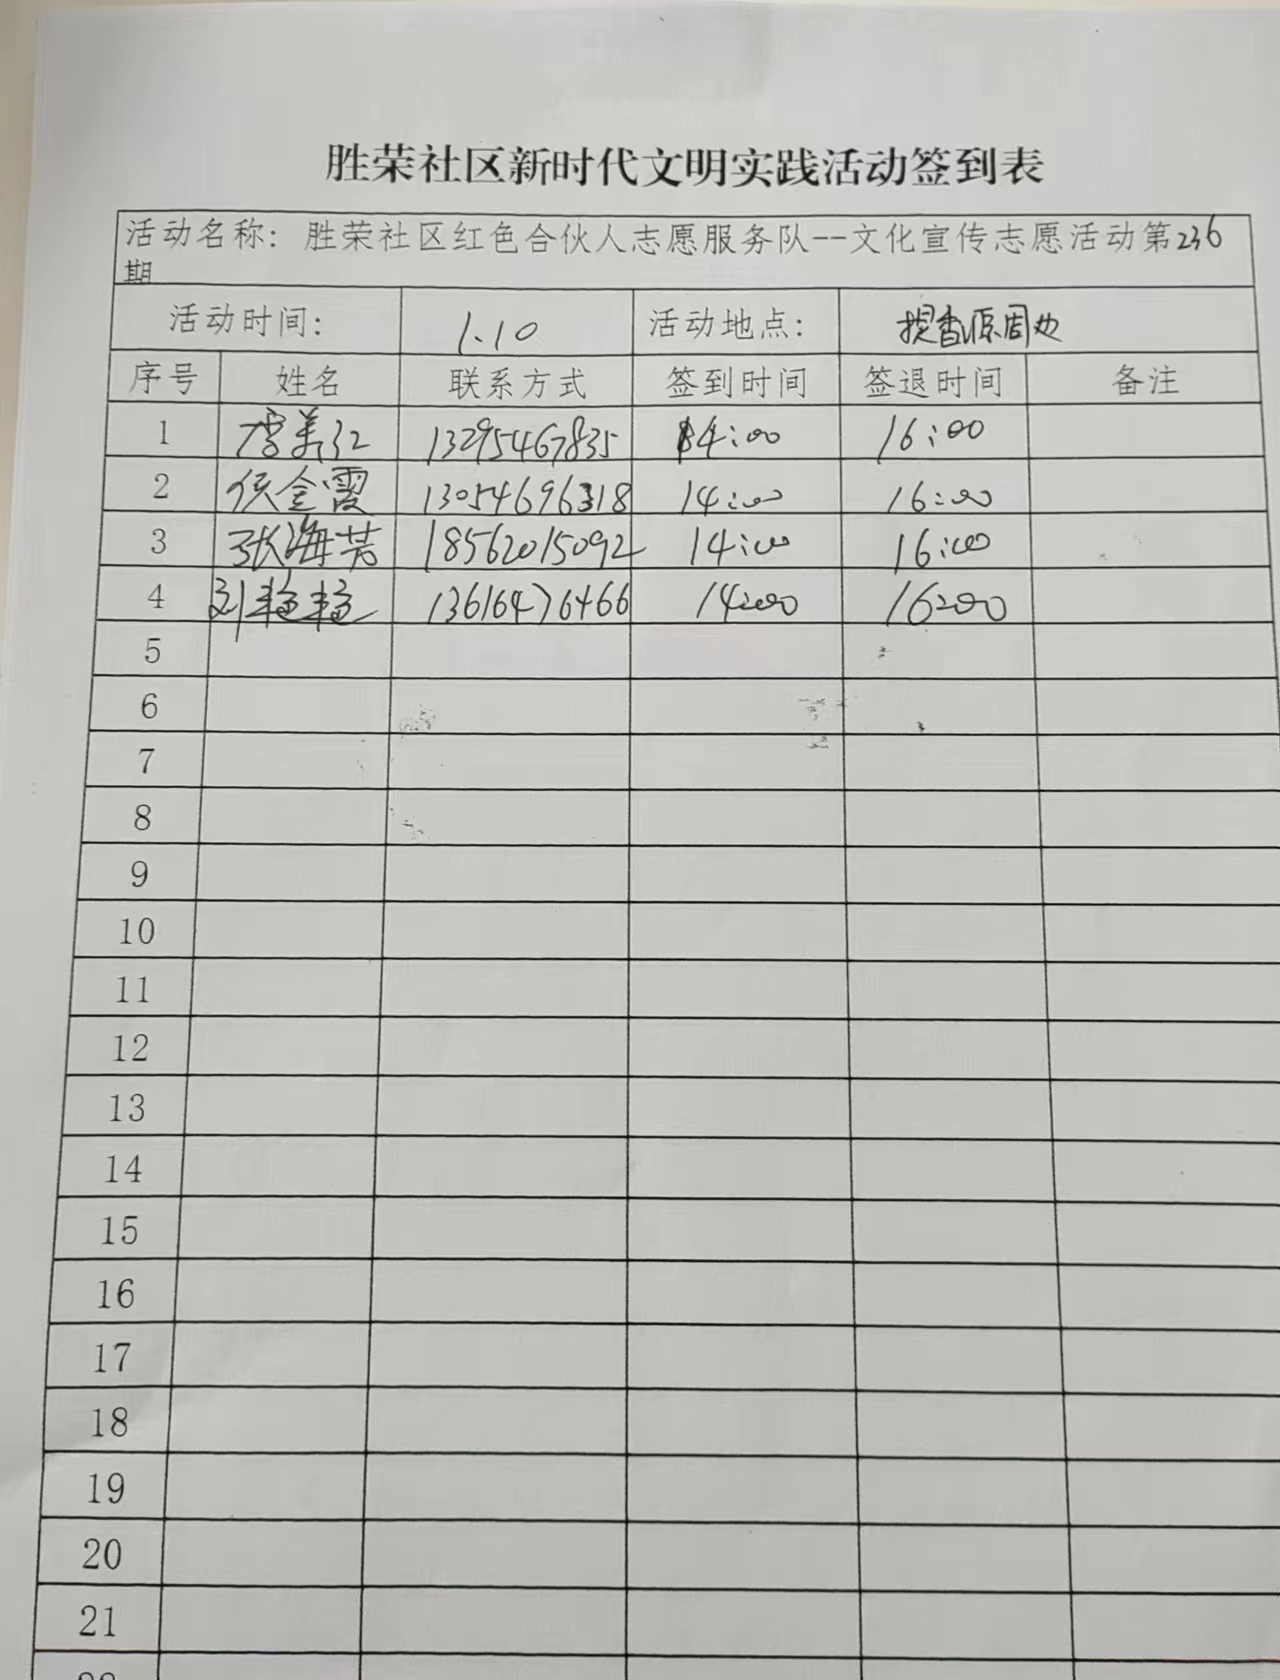 胜荣社区新时代文明实践活动签到表
活动名称：胜荣社区红色合伙人志愿服务队--文化宣传志愿活动第236
期
活动时间： 1.10 活动地点： 提香源周边
序号 姓名 联系方式 签到时间 签退时间 备注
1 李美红 13295467835 14:00 16:00
2 侯金霞 13054696318 14:00 16:00
3 张海芳 18562015092 14:00 16:00
4 刘 13616476466 14:00 16:00
5
6
7
8
9
10
11
12
13
14
15
16
17
18
19
20
21